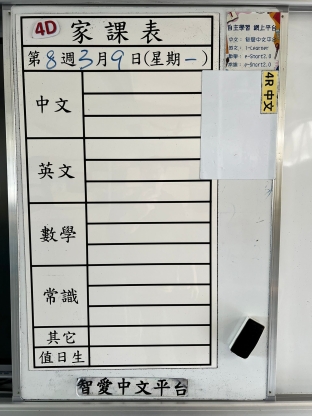 4D 家課表
第8週3月9日(星期一)
中文
英文
數學
常識
其它
值日生
智愛中文平台
自主學習 網上平台
中文：智愛中文平台
英文：i-Learner
數學：e-Smart2.0
常識：e-Smart2.0
4R 中文